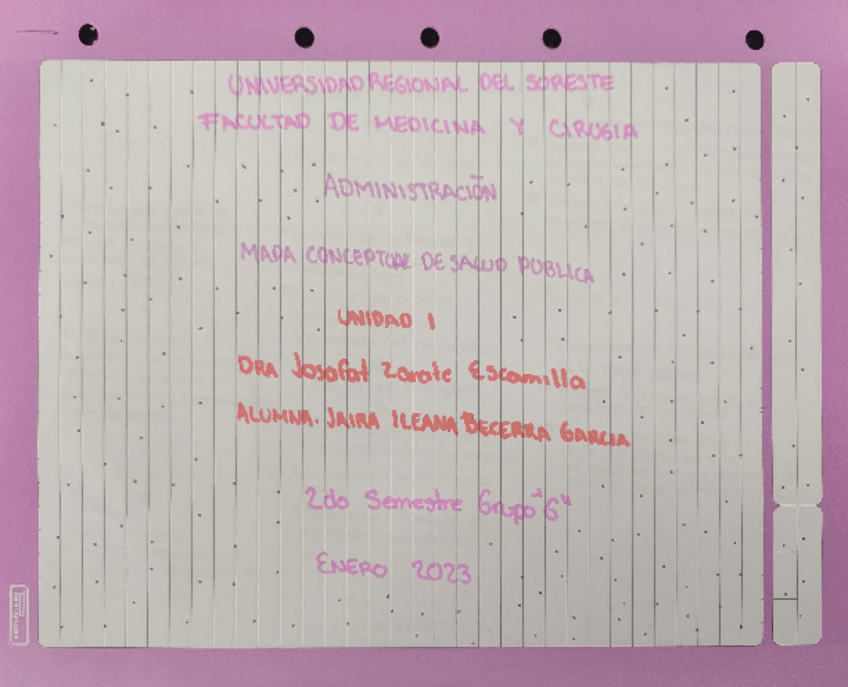 UNIVERSIDAD REGIONAL DEL SORESTE
FACULTAD DE MEDICINA Y CIRUGIA
ADMINISTRACIÓN
MAPA CONCEPTUAL DE SALUD PUBLICA
UNIDAD 1
DRA Josafat Zarate Escamilla
ALUMNA. JAIRA ILEANA BECERRA GARCIA
2do Semestre Grupo "G"
ENERO 2023